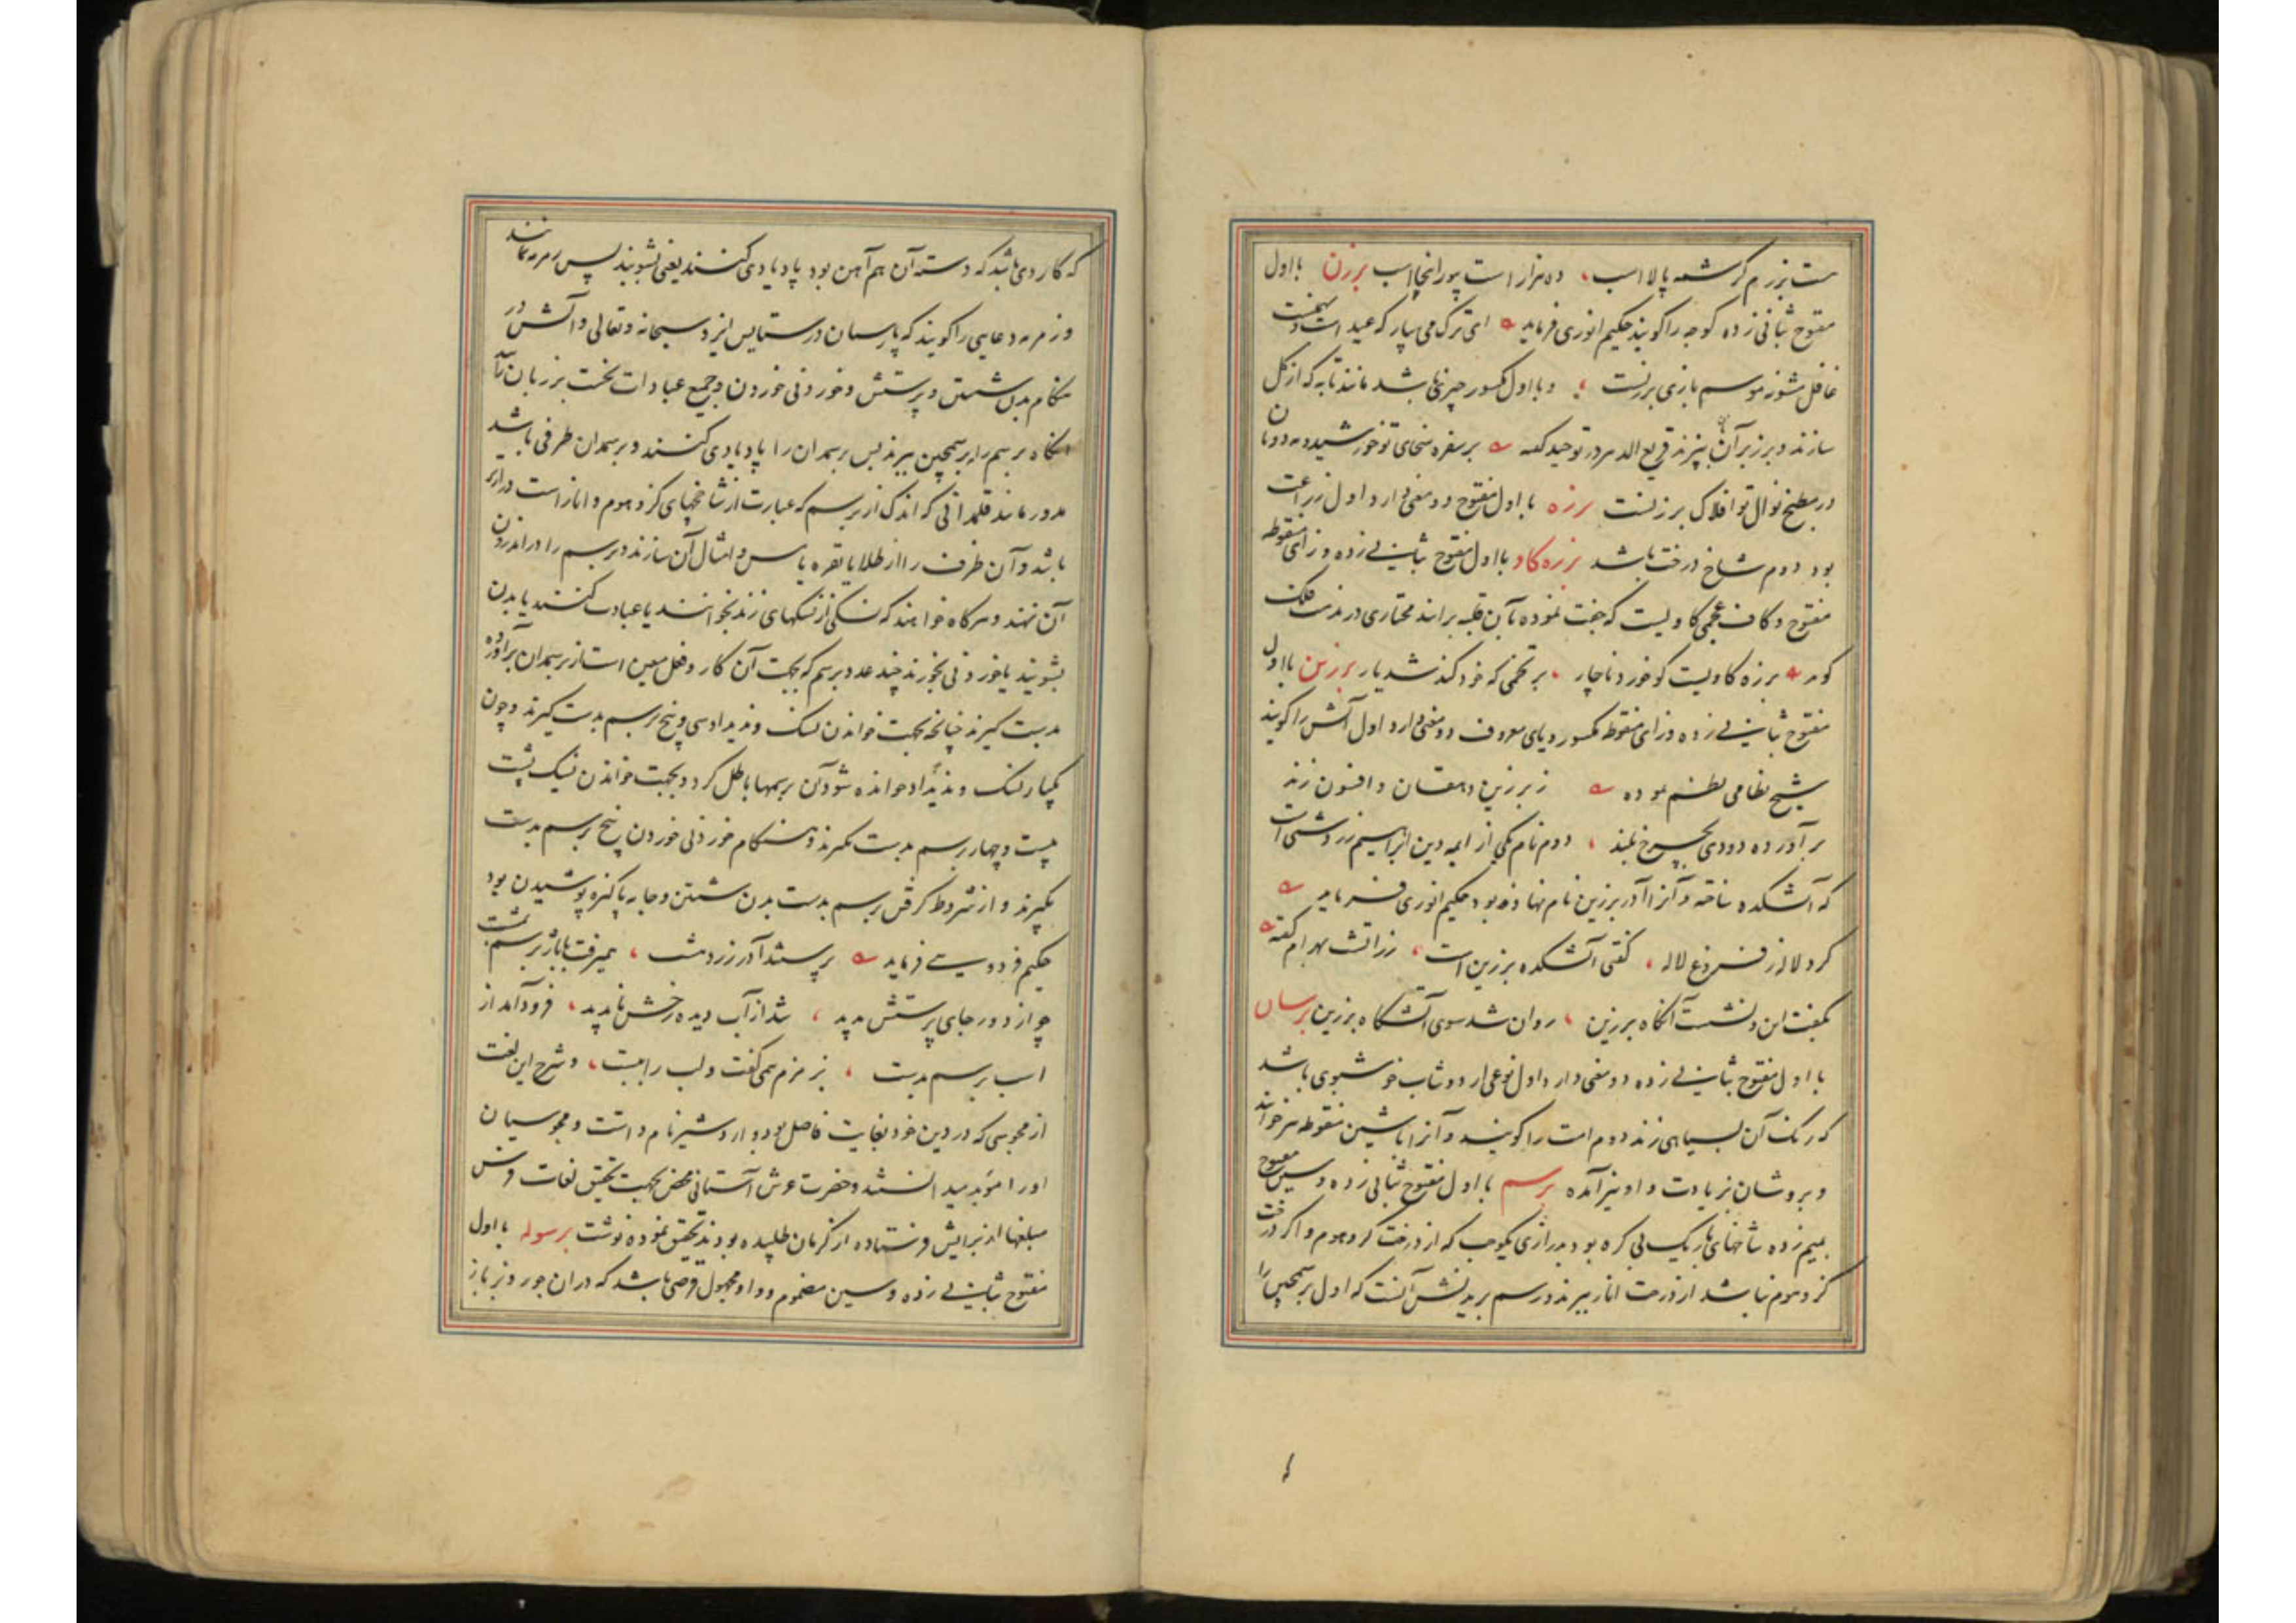 ست بزرم کرشمه پالا اسب ، ده هزار است پور انجا اسب برزن بااول
مفتوح بثانی زده کوچه را کویند حکیم انوری فرماید ای ترک می بیار که عید است و بهمنست
غافل مشو ز موسم بازی برزنست ، و بااول مکسور چیزی باشد مانند تابه که از کل
سازند و بر زبر آن نان پزند در توحید کفته بر سفره سخای تو خورشید و مه دو نان
در مطبخ نوال تو افلاک برزنست برزه بااول مفتوح دو معنی دارد اول زراعت
بود دوم شاخ درخت باشد برزه کاو بااول مفتوح بثانی زده و زای منقوطه
مفتوح و کاف عجمی کاویست که جفت نموده بآن قلبه رانند مختاری در مذمت فلک
کوید برزه کاویست کو خورد ناچار ، بر تخمی که خود کند شدیار برزین بااول
مفتوح بثانی زده و زای منقوطه مکسور و یای معروف دو معنی دارد اول آتش را کویند
شیخ نظامی نظم نموده ز برزین دهقان و افسون زند
بر آورده دودی بچرخ بلند ، دوم نام یکی از ایمه دین ابراهیم زردشتی است
که آتشکده ساخته و آنرا آذر برزین نام نهاده بود حکیم انوری فرماید
کرد لاله ز فروغ لاله ، کفتی آتشکده برزین است ، زراتشت بهرام کفته
بکفت این و نشست آنکاه بر زین ، روان شد سوی آتشکاه برزین برسان
بااول مفتوح بثانی زده دو معنی دارد اول نوعی از دوشاب خوشبوی باشد
که رنک آن بسیاهی زند دوم امت را کویند و آنرا باشین منقوطه نیز خوانند
و بروشان بزیادت واو نیز آمده برسم بااول مفتوح بثانی زده و سین مفتوح
بمیم زده شاخهای باریک بی کره بود بدرازی یکوجب که از درخت کز و هوم و اکر درخت
کز و هوم نباشد از درخت انار ببرند و رسم بریدنش آنست که اول برسمچین را
که کاردی باشد که دسته آن هم آهن بود پادیاوی کنند یعنی بشویند پس زمزمه نمایند
و زمزمه دعایی را کویند که پارسیان در ستایش ایزد سبحانه و تعالی و آتش در
هنکام بدن شستن و پرستش و خوردنی خوردن و جمیع عبادات نخست بر زبان رانند
آنکاه برسم را به برسمچین ببرند پس برسمدان را پادیاوی کنند و برسمدان ظرفی باشد
مدور مانند قلمدانی که اندک از برسم که عبارت از شاخهای کز و هوم و انار است درازتر
باشد و آن ظرف را از طلا یا نقره یا مس و امثال آن سازند و برسم را در اندرون
آن نهند و هرکاه خواهند که نسکی از نسکهای زند بخوانند یا عبادت کنند یا بدن
بشویند یا خوردنی بخورند چند عدد برسم که بجهت آن کار و فعل معین است از برسمدان برآورده
بدست کیرند چنانچه بجهت خواندن نسک وندیداد سی و پنج برسم بدست کیرند و چون
یکبار نسک وندیداد خوانده شود آن برسمها باطل کردد و بجهت خواندن نسک یشت
بیست و چهار برسم بدست کیرند و هنکام خوردنی خوردن پنج برسم بدست
بکیرند و از شروط کرفتن برسم بدست بدن شستن و جامه پاکیزه پوشیدن بود
حکیم فردوسی فرماید پرستنده آذر زردهشت ، همیرفت با باژ برسم بمشت
چو از دور جای پرستش بدید ، شد از آب دیده رخش ناپدید ، فرود آمد از
اسب برسم بدست ، بزمزم همی کفت و لب را ببست ، و شرح این لغت
از مجوسی که در دین خود بغایت فاضل بود و اردشیر نام داشت و مجوسیان
او را موبد میدانستند و حضرت عرش آستانی محض بجهت تحقیق لغات فرس
مبلغها از برایش فرستاده از کرمان طلبیده بودند تحقیق نموده نوشت برسوله بااول
مفتوح بثانی زده و سین مضموم و واو مجهول قرصی باشد که در آن جوز و بزرباز